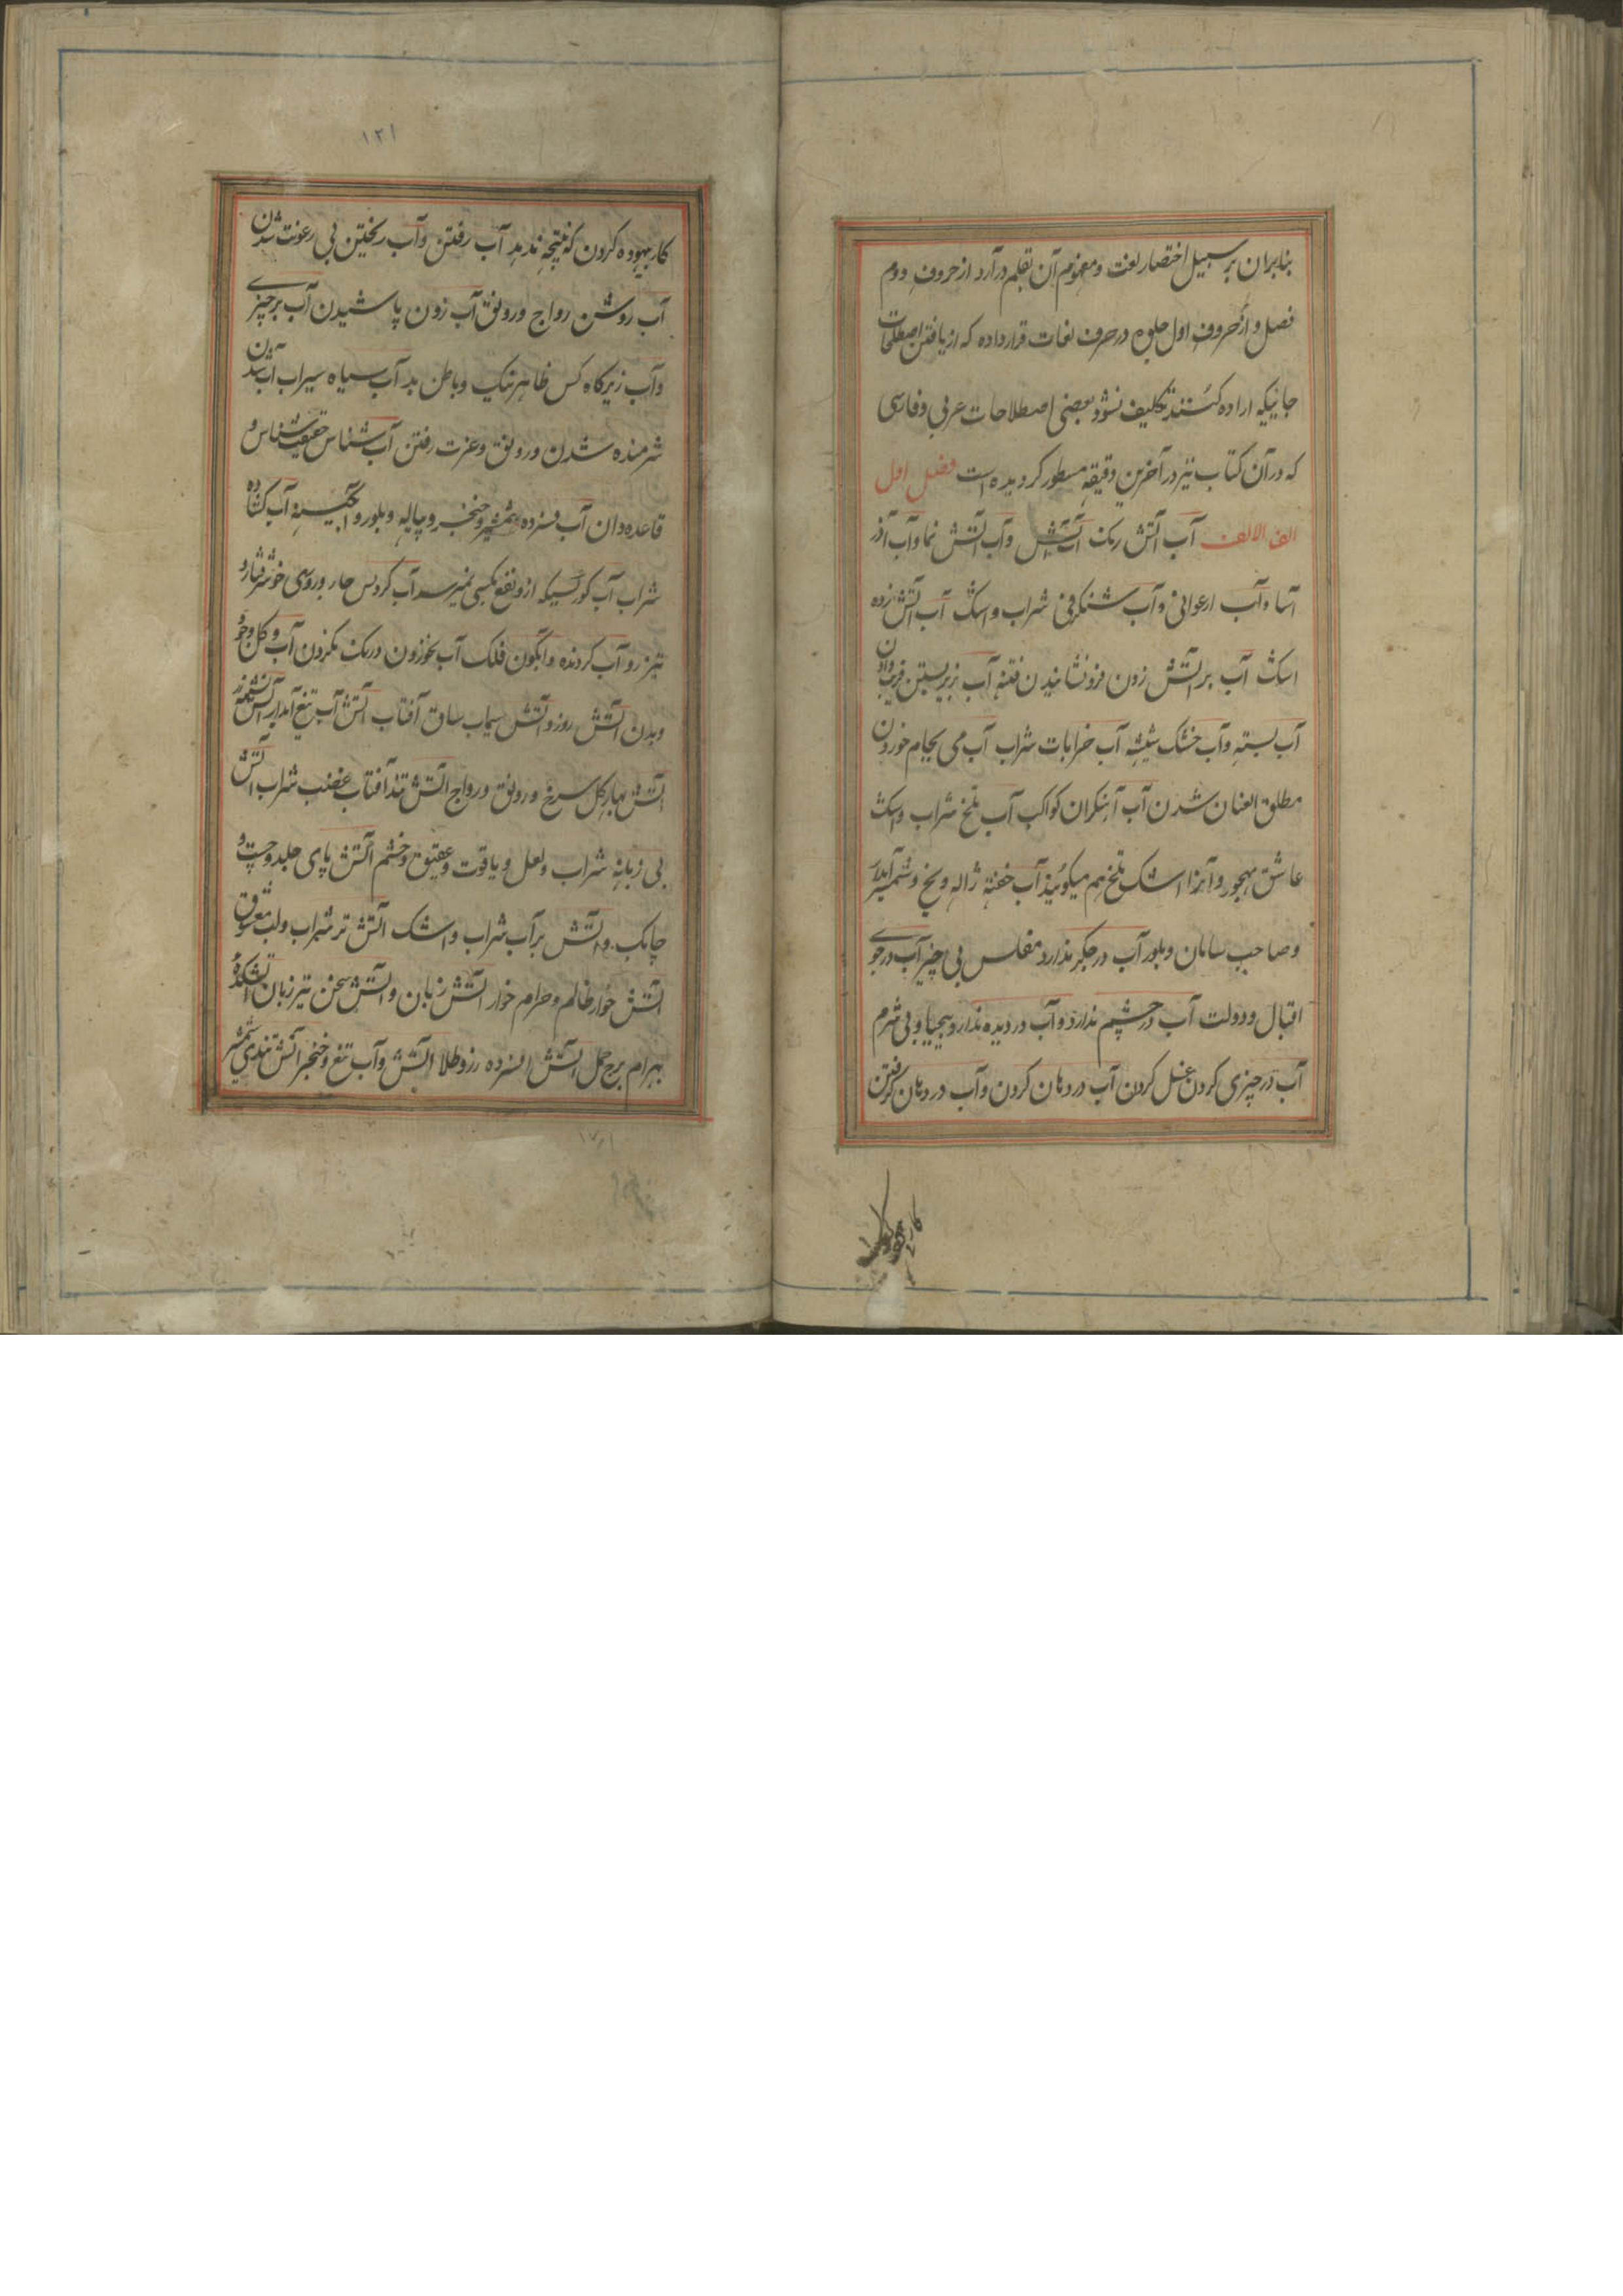 بنابران بر سبیل اختصار لغت و مفهوم آن بقلم در آرد از حروف دوم
فصل و از حروف اول جلوه در حرف لغات قرار داده که از یافتن اصطلاحات
جانیکه اراده کنند تکلیف نشود بعضی اصطلاحات عربی و فارسی
که در آن کتاب نیز در آخرین دقیقه مسطور کردیده است فصل اول
الف الالف آب آتش رنک آب آتش و آب آتش نما و آب آذر
آسا و آب ارغوانی و آب شنکرفی شراب و اسک آب آتش زده
اسک آب بر آتش زدن فرو نشانیدن فتنه آب بزیر بستن فریب دادن
آب بسته و آب خشک شیشه آب خرابات شراب آب می بجام خوردن
مطلق العنان شدن آب آهنکران کواکب آب تلخ شراب و اسک
عاشق مهجور و آنرا اشک تلخ هم میکویند آب خفته ژاله و یخ و شمشیر آبدار
و صاحب سامان و بلور آب در جکر ندارد مفلس بی چیز آب در جوی
اقبال و دولت آب در چشم ندارد و آب در دیده ندارد بیحیا و بی شرم
آب در چیزی کردن غسل کردن آب در دهان کردن و آب در دهان کرفتن
۱۲۱
کار بیهوده کردن که نتیجه ندهد آب رفتن و آب ریختن بی رعونت شدن
آب روشن رواج و رونق آب زدن پاشیدن آب بر چیزی
و آب زیر کاه کس ظاهر نیک و باطن بد آب سیاه سیراب آب شدن
شرمنده شدن و رونق و عزت رفتن آب شناس حقیقت شناس و
قاعده دان آب فسرده شمشیر و خنجر و پیاله و بلور و آبکینه آب کشاده
شراب آب کور کسیکه ازو نفع بکسی نمیرسد آب کردس چار و روسی خوش رفتار و
تیز رو آب کردنده و آبکون فلک آب بخوردن درنک نکردن آب و کل وجود
و بدن آتش روز و آتش سیماب ساق آفتاب آتش آب تیغ آبدار آتش
آتش بهار کل سرخ و رونق و رواج آتش تند آفتاب غضب شراب آتش
بی زبانه شراب و لعل و یاقوت و عقیق و خشم آتش پای جلد و چست و
چابک و آتش بر آب شراب و اشک آتش تر شراب و لب معشوق
آتش خوار ظالم و حرام خوار آتش زبان و آتش سخن تیز زبان آتشکده
بهرام برج حمل آتش افسرده زر و طلا آتش و آب تیغ و خنجر آتش هندی شمشیر